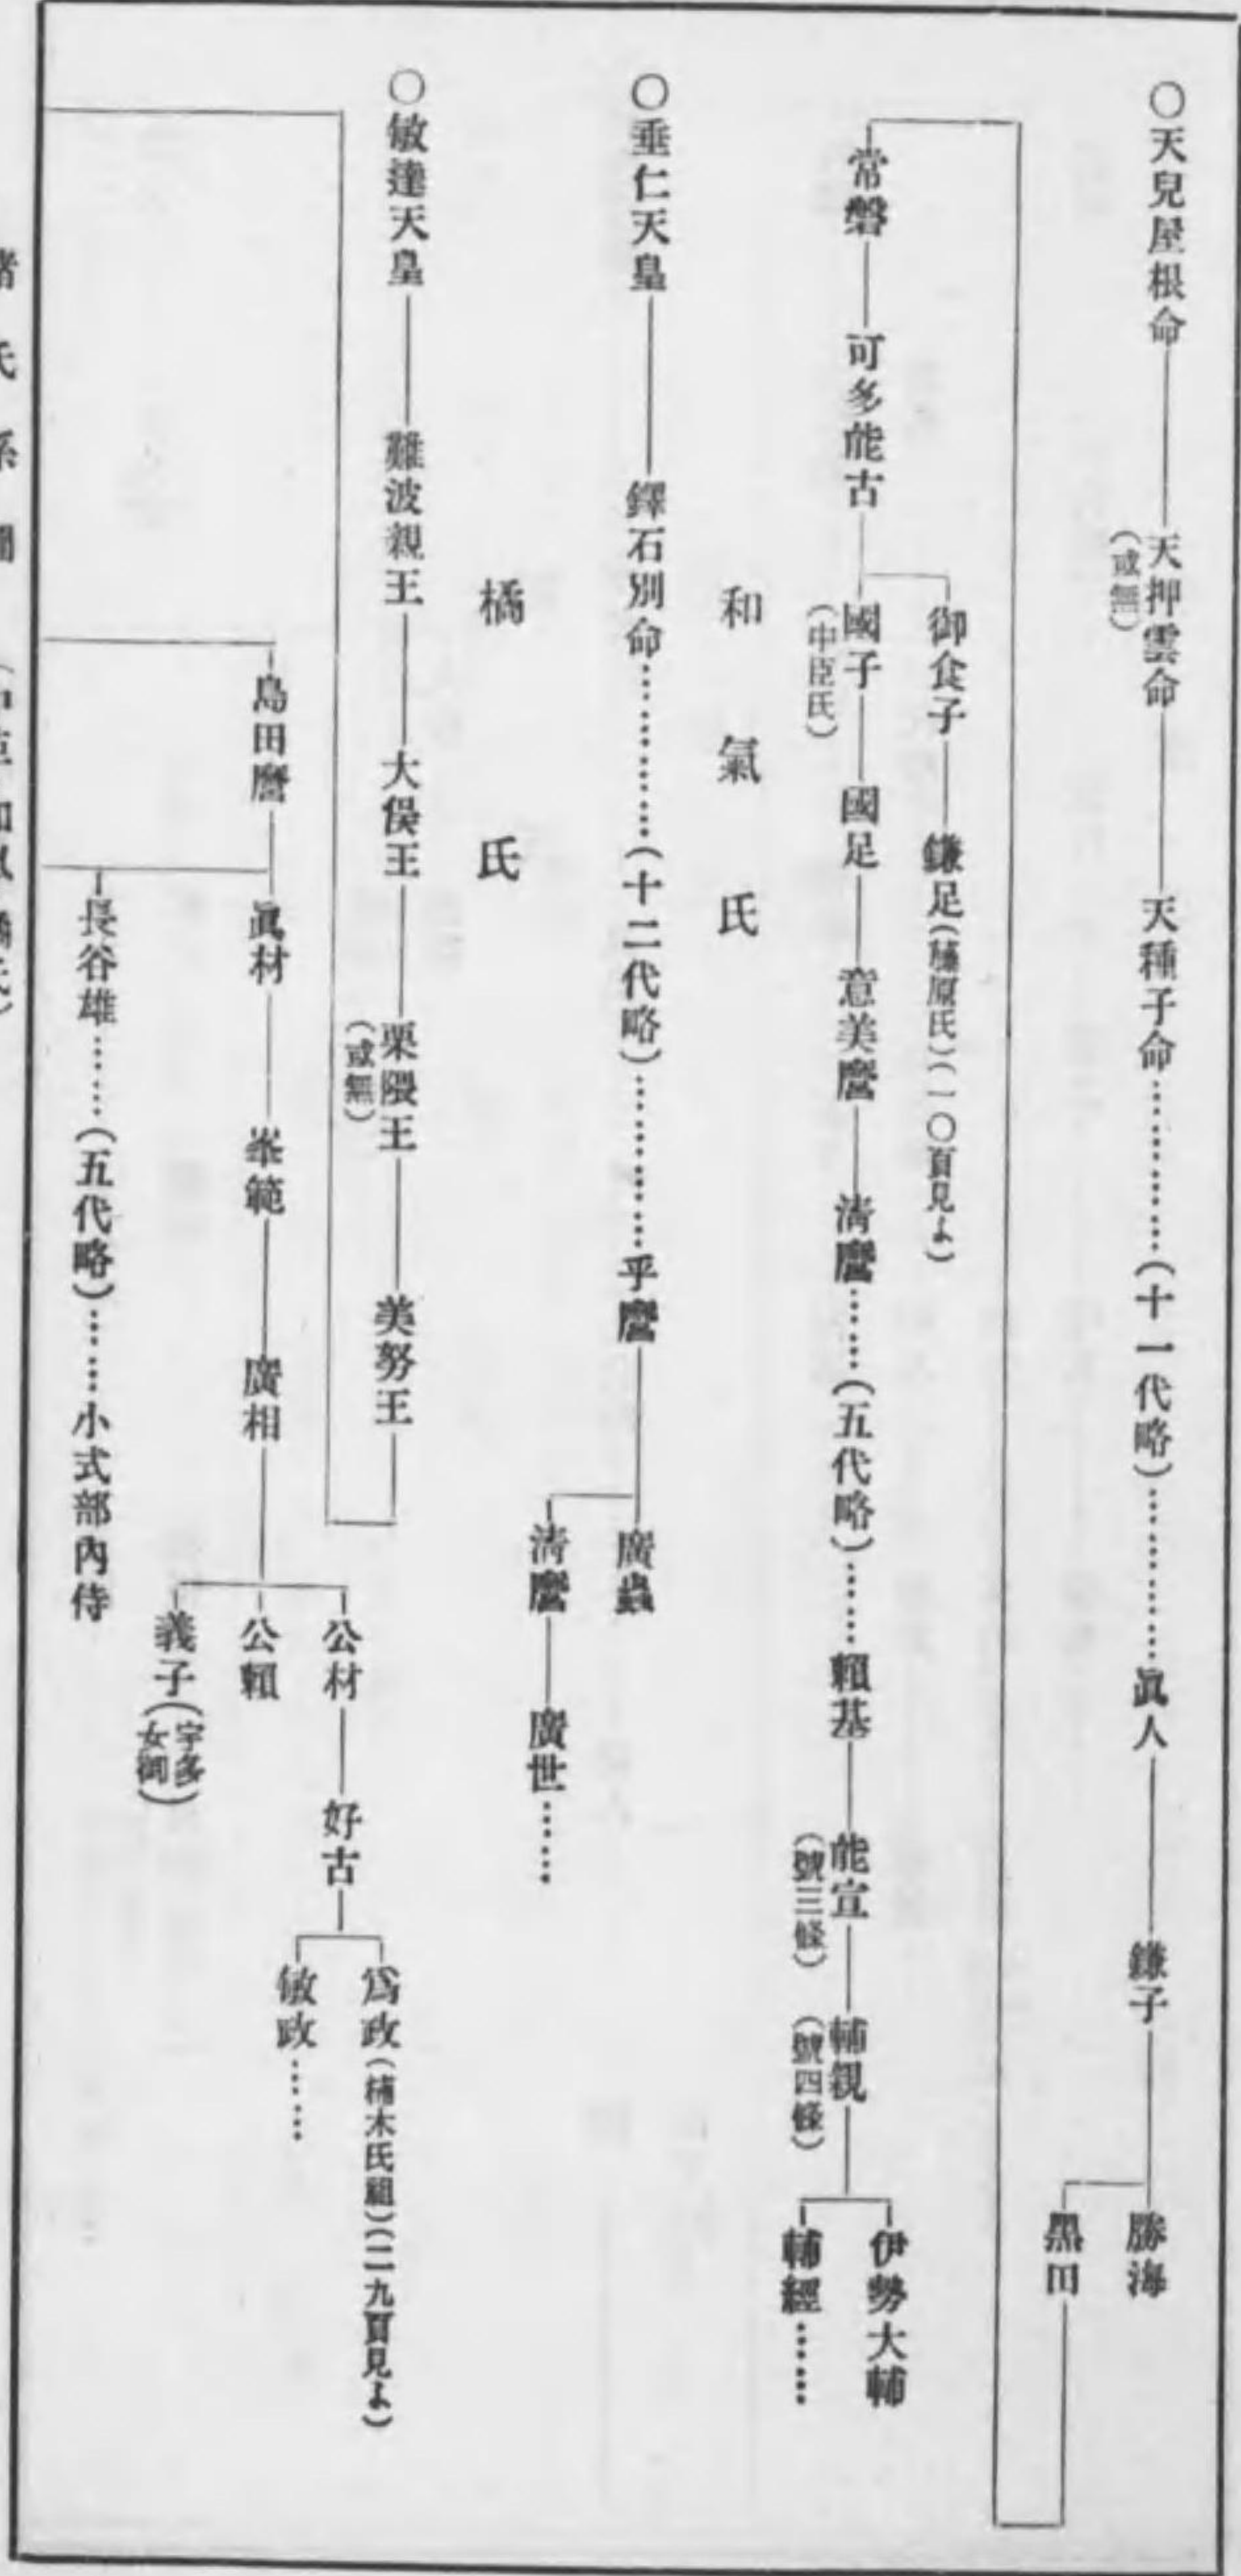 〇天兒屋根命
天押雲命
(或無)
天種子命…………(十一代略)…………眞人
鎌子
勝海
黑田
常磐
可多能古
御食子
鎌足(藤原氏)(一〇頁見よ)
國子
(中臣氏)
國足
意美麿
淸麿……(五代略)……賴基
能宣
(號三條)
輔親
(號四條)
伊勢大輔
輔經……
和氣氏
〇垂仁天皇
鐸石別命…………(十二代略)…………乎麿
廣蟲
淸麿
廣世……
橘氏
〇敏達天皇
難波親王
大俣王
栗隈王
(或無)
美努王
島田麿
眞材
峯範
廣相
公材
好古
爲政(楠木氏祖)(二九頁見よ)
敏政……
公賴
義子(宇多女御)
長谷雄……(五代略)……小式部內侍